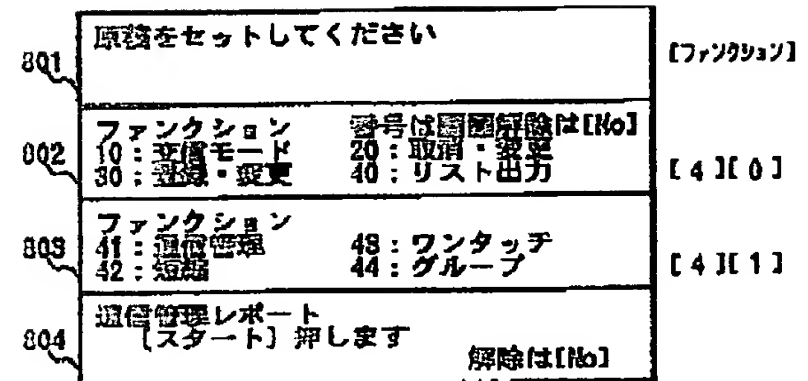 801
原稿をセットしてください
[ファンクション]
802
ファンクション 番号は 解除は[No]
10：交信モード 20：取消・変更
30：登録・変更 40：リスト出力
[4][0]
803
ファンクション
41：通信管理 43：ワンタッチ
42：短縮 44：グループ
[4][1]
804
通信管理レポート
[スタート] 押します
解除は[No]